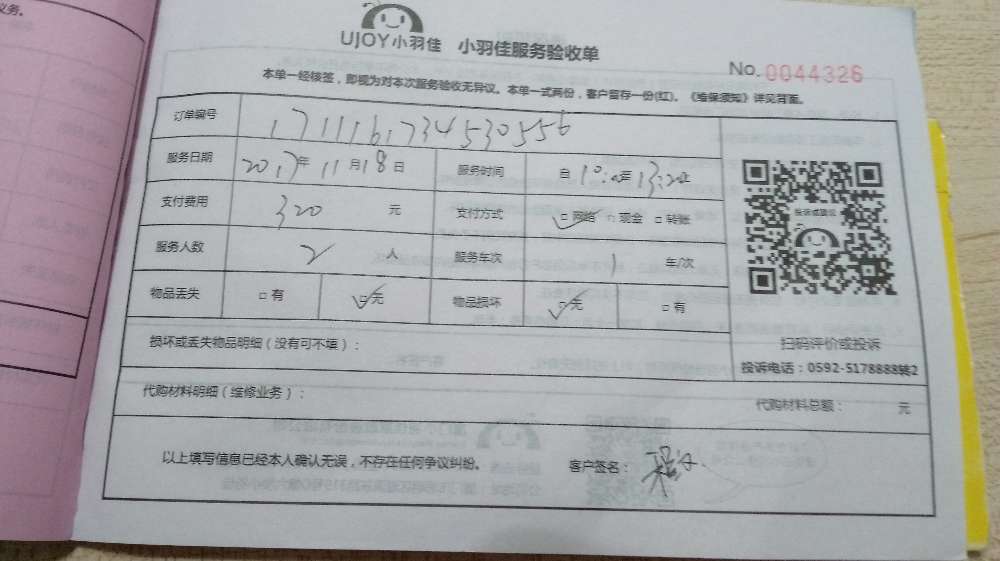 义务。
UJOY小羽佳 小羽佳服务验收单
No. 0044326
本单一经核签，即视为对本次服务验收无异议。本单一式两份，客户留存一份(红)。《维保须知》详见背面。
订单编号 171116173453055 6
服务日期 2017年 11月18日 服务时间 自 10:00至 13:20止
支付费用 320 元 支付方式 □网络 □现金 □转账
服务人数 2 人 服务车次 1 车/次
物品丢失 □有 □无 物品损坏 □无 □有
投诉或建议
扫码评价或投诉
投诉电话：0592-5178888转2
损坏或丢失物品明细（没有可不填）：
代购材料明细（维修业务）： 代购材料总额： 元
以上填写信息已经本人确认无误，不存在任何争议纠纷。 客户签名：